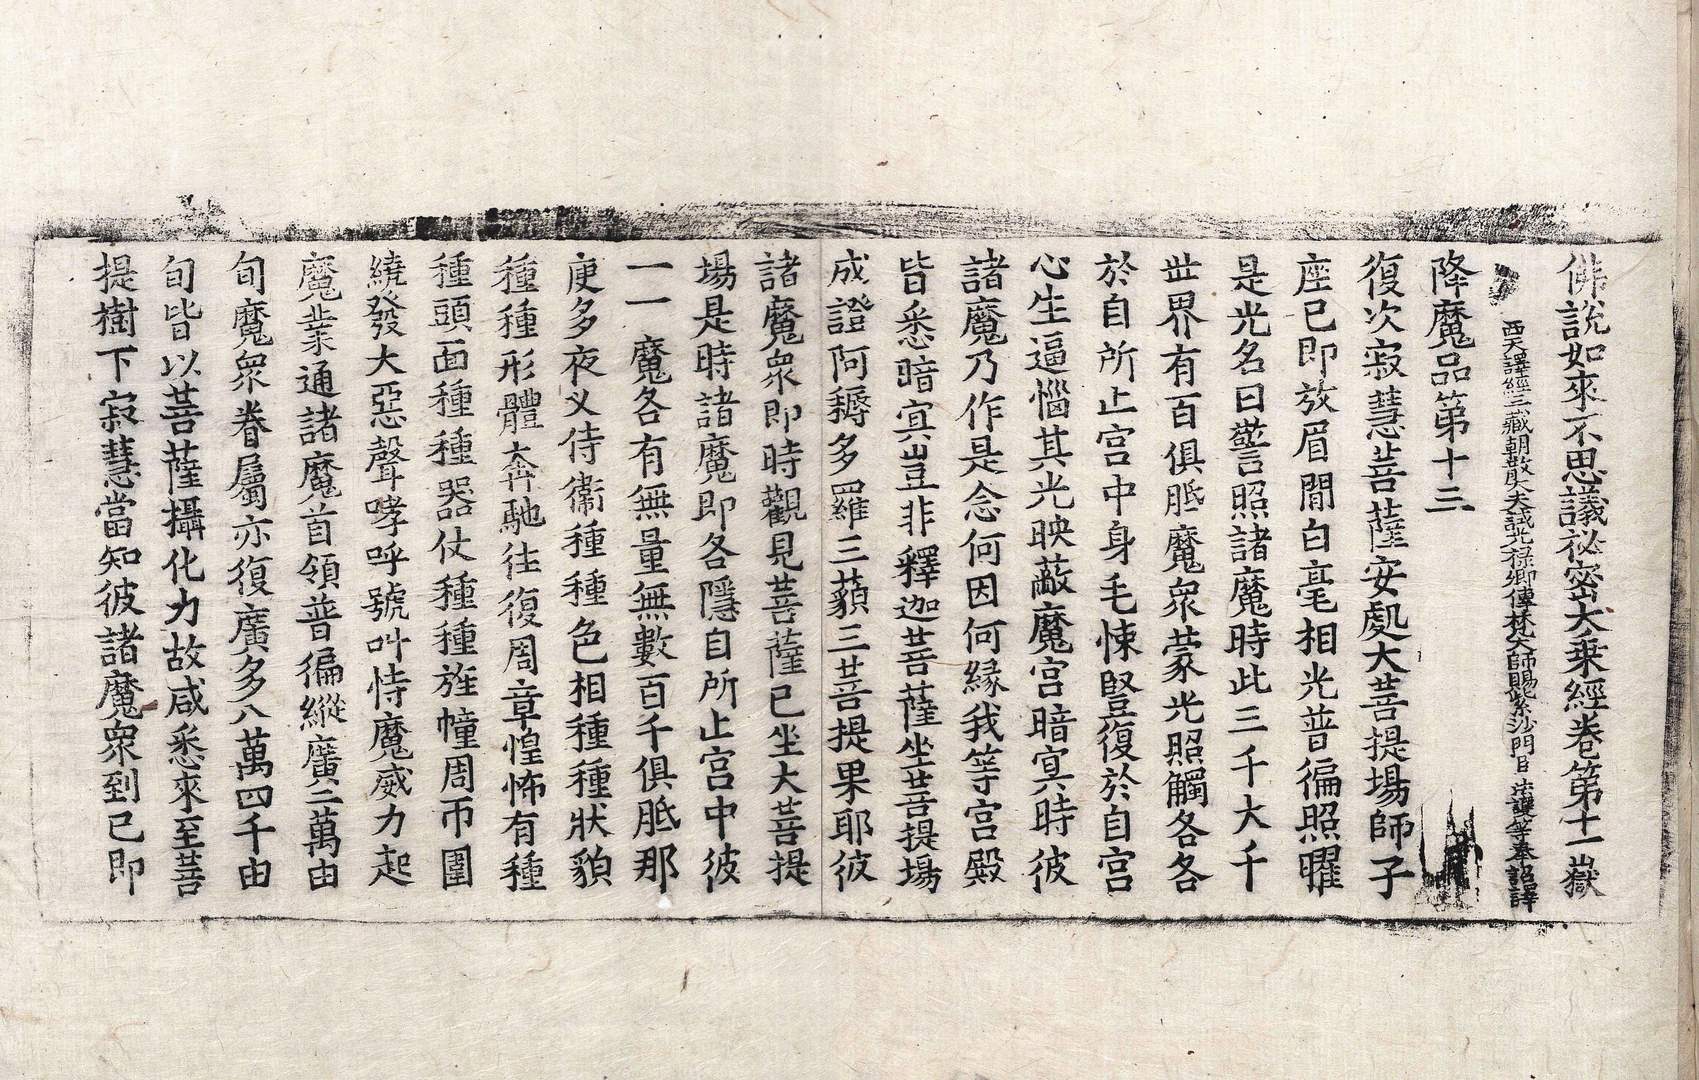 佛說如來不思議祕密大乘經卷第十一嶽
西天譯經三藏朝散大夫試光祿卿傳梵大師賜紫沙門臣法護等奉詔譯
降魔品第十三
復次寂慧菩薩安處大菩提場師子
座已即放眉間白毫相光普徧照曜
是光名曰警照諸魔時此三千大千
世界有百俱胝魔眾蒙光照觸各各
於自所止宮中身毛悚豎復於自宮
心生逼惱其光映蔽魔宮暗冥時彼
諸魔乃作是念何因何緣我等宮殿
皆悉暗冥豈非釋迦菩薩坐菩提場
成證阿耨多羅三藐三菩提果耶彼
諸魔眾即時觀見菩薩已坐大菩提
場是時諸魔即各隱自所止宮中彼
一一魔各有無量無數百千俱胝那
庾多夜叉侍衛種種色相種種狀貌
種種形體奔馳往復周章惶怖有種
種頭面種種器仗種種旌幢周帀圍
繞發大惡聲哮呼號叫恃魔威力起
魔業通諸魔首領普徧縱廣二萬由
旬魔眾眷屬亦復廣多八萬四千由
旬皆以菩薩攝化力故咸悉來至菩
提樹下寂慧當知彼諸魔眾到已即